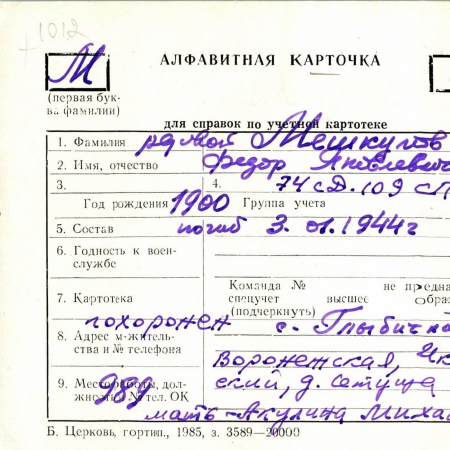 1012
М
АЛФАВИТНАЯ КАРТОЧКА
(первая бук-
ва фамилии)
для справок по учетной картотеке
1. Фамилия рядовой Мешкулов
2. Имя, отчество Федор Яковлевич
3. 4. 74 сД. 109 сП
Год рождения 1900 Группа учета
5. Состав погиб 3.01.1944г
6. Годность к воен-
службе
Команда № не предна
7. Картотека спецучет высшее образ
(подчеркнуть)
похоронен с.
8. Адрес м-житель-
ства и № телефона
Воронежская,
9. Место работы, дол-
жность и № тел. ОК 989 ский, д.
мать - Акулина Михай
Б. Церковь, гортип., 1985, з. 3589—20000